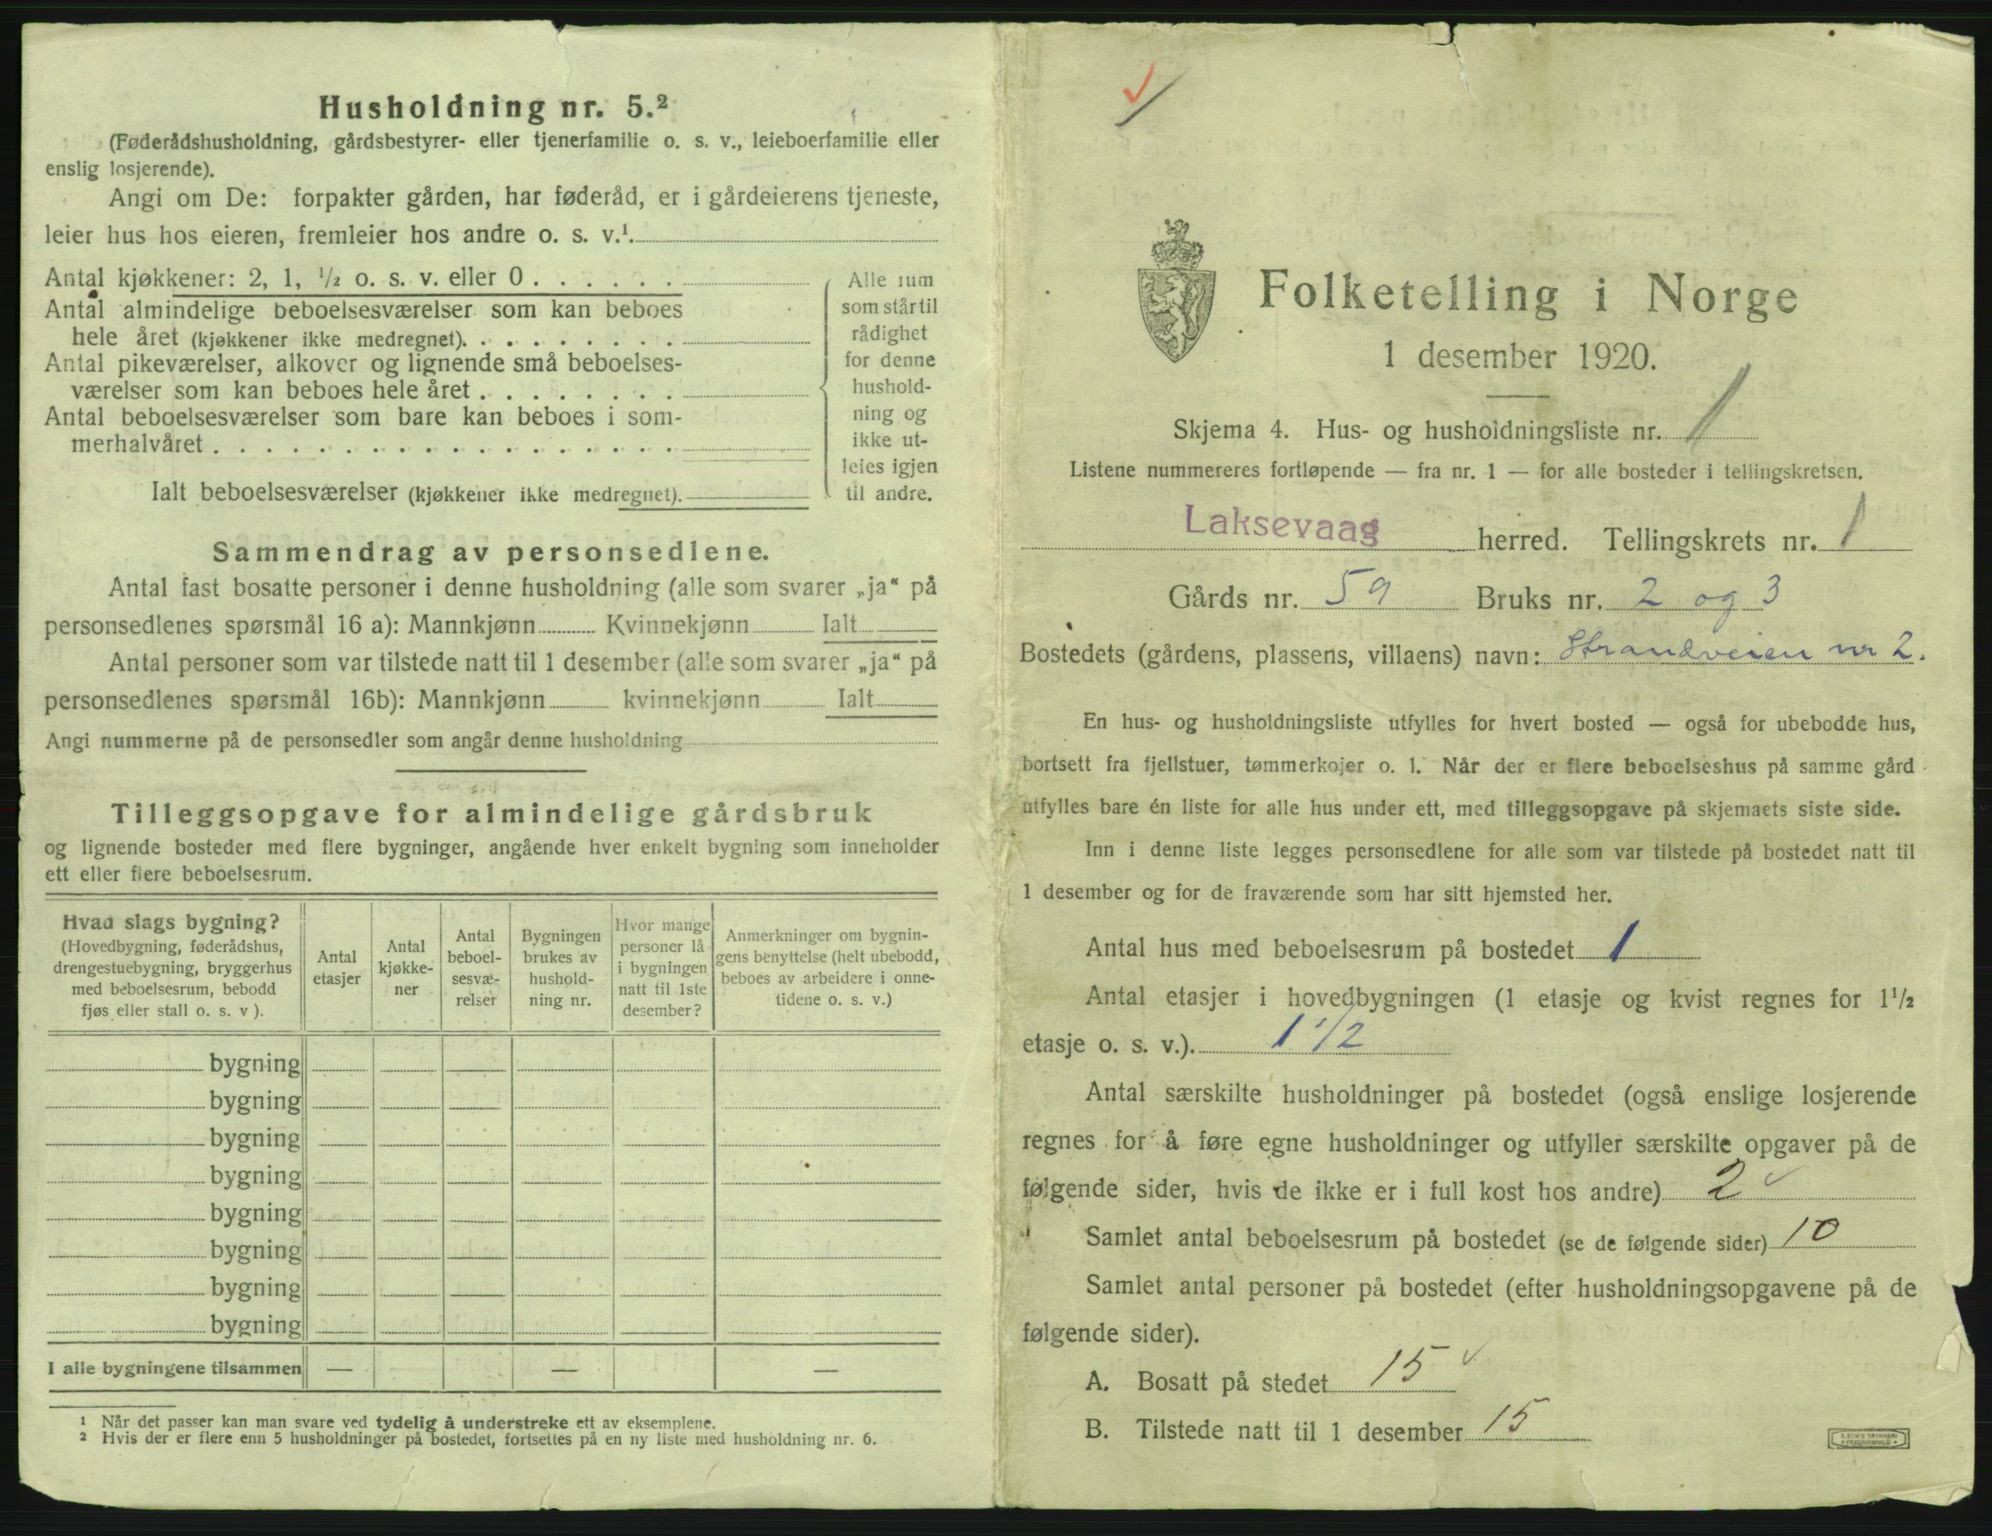 Husholdning nr. 5.²
(Føderådshusholdning, gårdsbestyrer- eller tjenerfamilie o. s. v., leieboerfamilie eller
enslig losjerende).
Angi om De: forpakter gården, har føderåd, er i gårdeierens tjeneste,
leier hus hos eieren, fremleier hos andre o. s. v.¹.
Antal kjøkkener: 2, 1, ½ o. s. v. eller 0 . . . . . .
Antal almindelige beboelsesværelser som kan beboes
hele året (kjøkkener ikke medregnet). . . . . . . . .
Antal pikeværelser, alkover og lignende små beboelses-
værelser som kan beboes hele året . . . . . . . .
Antal beboelsesværelser som bare kan beboes i som-
merhalvåret . . . . . . . . . . . . . . . . . .
Ialt beboelsesværelser (kjøkkener ikke medregnet).
Alle rum
som står til
rådighet
for denne
hushold-
ning og
ikke ut-
leies igjen
til andre.
Sammendrag av personsedlene.
Antal fast bosatte personer i denne husholdning (alle som svarer „ja“ på
personsedlenes spørsmål 16 a): Mannkjønn Kvinnekjønn Ialt
Antal personer som var tilstede natt til 1 desember (alle som svarer „ja“ på
personsedlenes spørsmål 16b): Mannkjønn kvinnekjønn Ialt
Angi nummerne på de personsedler som angår denne husholdning
Tilleggsopgave for almindelige gårdsbruk
og lignende bosteder med flere bygninger, angående hver enkelt bygning som inneholder
ett eller flere beboelsesrum.
Hvad slags bygning?
(Hovedbygning, føderådshus,
drengestuebygning, bryggerhus
med beboelsesrum, bebodd
fjøs eller stall o. s. v ).
Antal
etasjer
Antal
kjøkke-
ner
Antal
beboel-
sesvæ-
relser
Bygningen
brukes av
hushold-
ning nr.
Hvor mange
personer lå
i bygningen
natt til 1ste
desember?
Anmerkninger om bygnin-
gens benyttelse (helt ubebodd,
beboes av arbeidere i onne-
tidene o. s. v.)
bygning
bygning
bygning
bygning
bygning
bygning
bygning
bygning
I alle bygningene tilsammen — — —
¹ Når det passer kan man svare ved tydelig å understreke ett av eksemplene.
² Hvis der er flere enn 5 husholdninger på bostedet, fortsettes på en ny liste med husholdning nr. 6.
Folketelling i Norge
1 desember 1920.
Skjema 4. Hus- og husholdningsliste nr. 1
Listene nummereres fortløpende — fra nr. 1 — for alle bosteder i tellingskretsen.
Laksevaag herred. Tellingskrets nr. 1
Gårds nr. 59 Bruks nr. 2 og 3
Bostedets (gårdens, plassens, villaens) navn: Strandveien nr 2.
En hus- og husholdningsliste utfylles for hvert bosted — også for ubebodde hus,
bortsett fra fjellstuer, tømmerkojer o. l. Når der er flere beboelseshus på samme gård
utfylles bare én liste for alle hus under ett, med tilleggsopgave på skjemaets siste side.
Inn i denne liste legges personsedlene for alle som var tilstede på bostedet natt til
1 desember og for de fraværende som har sitt hjemsted her.
Antal hus med beboelsesrum på bostedet 1
Antal etasjer i hovedbygningen (1 etasje og kvist regnes for 1½
etasje o. s. v.). 1 1/2
Antal særskilte husholdninger på bostedet (også enslige losjerende
regnes for å føre egne husholdninger og utfyller særskilte opgaver på de
følgende sider, hvis de ikke er i full kost hos andre) 2
Samlet antal beboelsesrum på bostedet (se de følgende sider) 10
Samlet antal personer på bostedet (efter husholdningsopgavene på de
følgende sider).
A. Bosatt på stedet 15
B. Tilstede natt til 1 desember 15